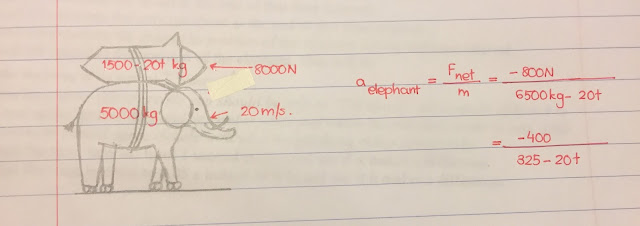 1500-20t kg
8000N
5000kg
20m/s.
a elephant = Fnet/m = -800N/6500kg-20t
= -400/325-20t